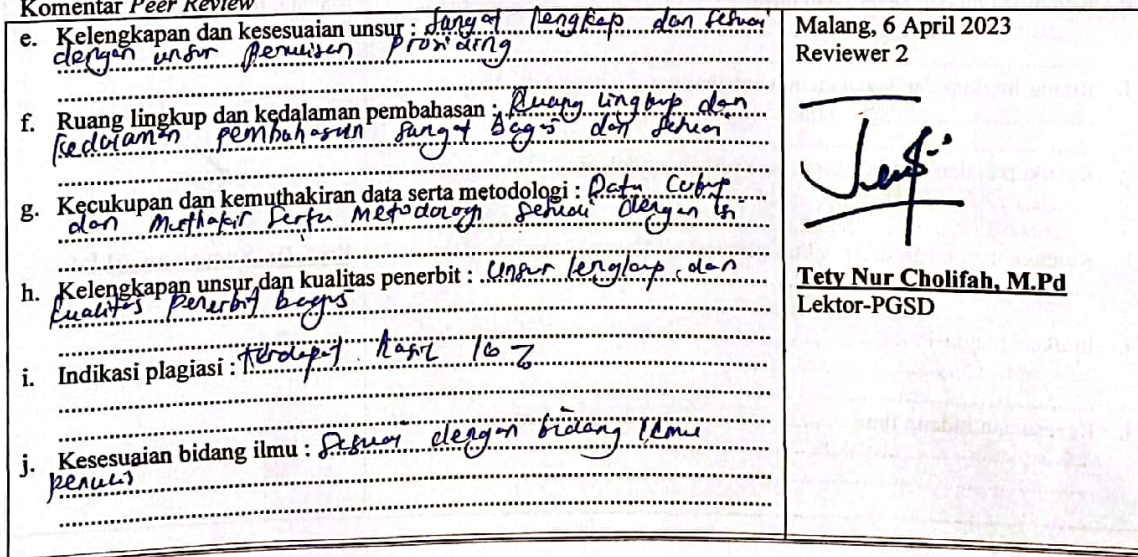 Komentar Peer Review
e. Kelengkapan dan kesesuaian unsur : Sangat lengkap dan sesuai
dengan unsur penulisan prosiding
f. Ruang lingkup dan kedalaman pembahasan : Ruang lingkup dan
kedalaman pembahasan sangat bagus dan sesuai
g. Kecukupan dan kemuthakiran data serta metodologi : Data Cukup
dan Muthakir serta metodologi sesuai dengan isi
h. Kelengkapan unsur dan kualitas penerbit : Unsur lengkap dan
kualitas penerbit bagus
i. Indikasi plagiasi : terdapat hasil 16 %
j. Kesesuaian bidang ilmu : Sesuai dengan bidang ilmu
penulis
Malang, 6 April 2023
Reviewer 2
Tety Nur Cholifah, M.Pd
Lektor-PGSD